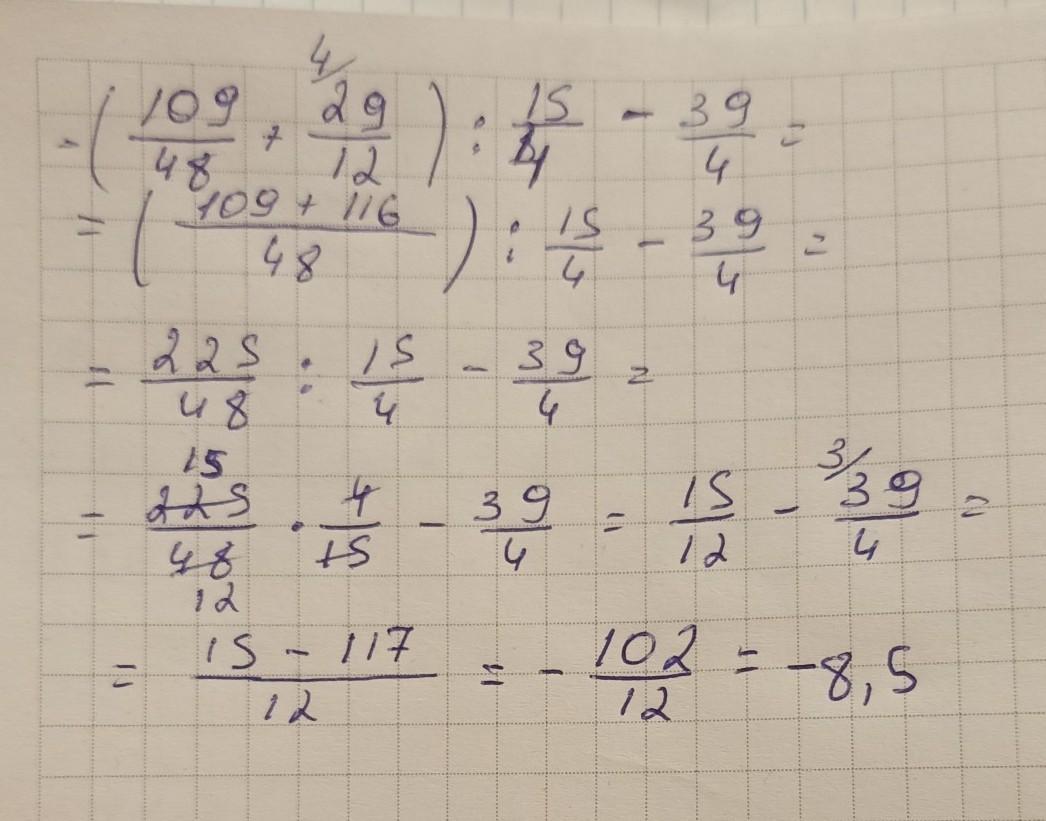 = ( 109/48 + 4/ 29/12 ) : 15/4 - 39/4 =
= ( 109 + 116 / 48 ) : 15/4 - 39/4 =
= 225/48 : 15/4 - 39/4 =
= 15 225/48 12 · 4/15 - 39/4 = 15/12 - 3/ 39/4 =
= 15 - 117 / 12 = - 102/12 = -8,5